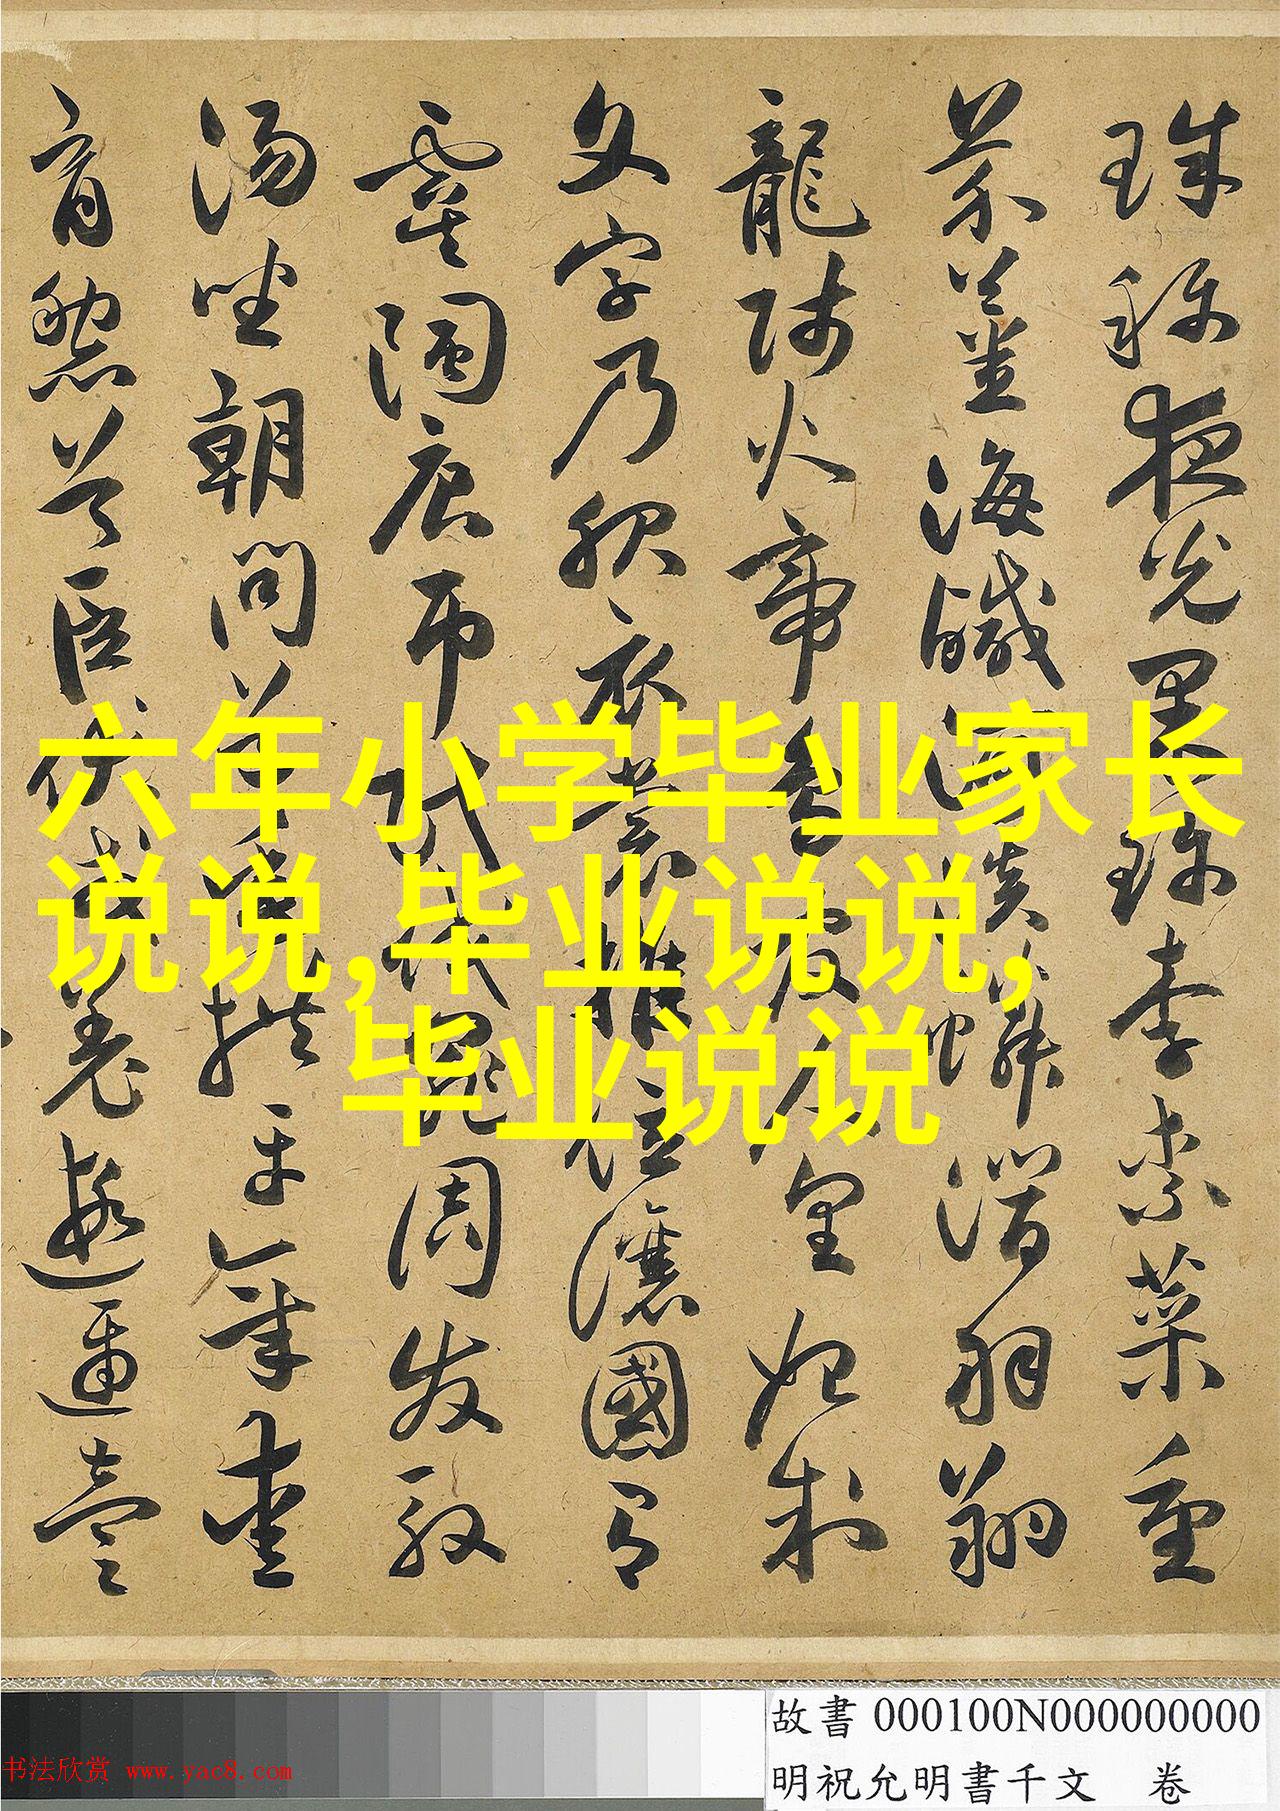 珠稱夜光果珍李柰菜重
芥薑海鹹河淡鱗潛羽翔
龍師火帝鳥官人皇始制
文字乃服衣裳推位讓國有
虞陶唐弔民伐罪周發殷
湯坐朝問道垂拱平章愛
育黎首臣伏戎羌遐邇壹
六年小学毕业家长
说说,毕业说说,
毕业说说
故書 000100N000000000
明祝允明書千文 卷
书法欣赏 www.yac8.com